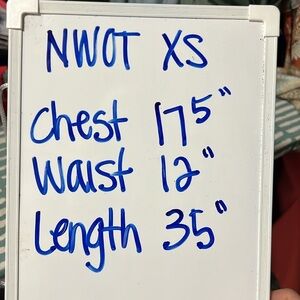 NWOT XS
Chest 17⁵"
Waist 12"
Length 35"